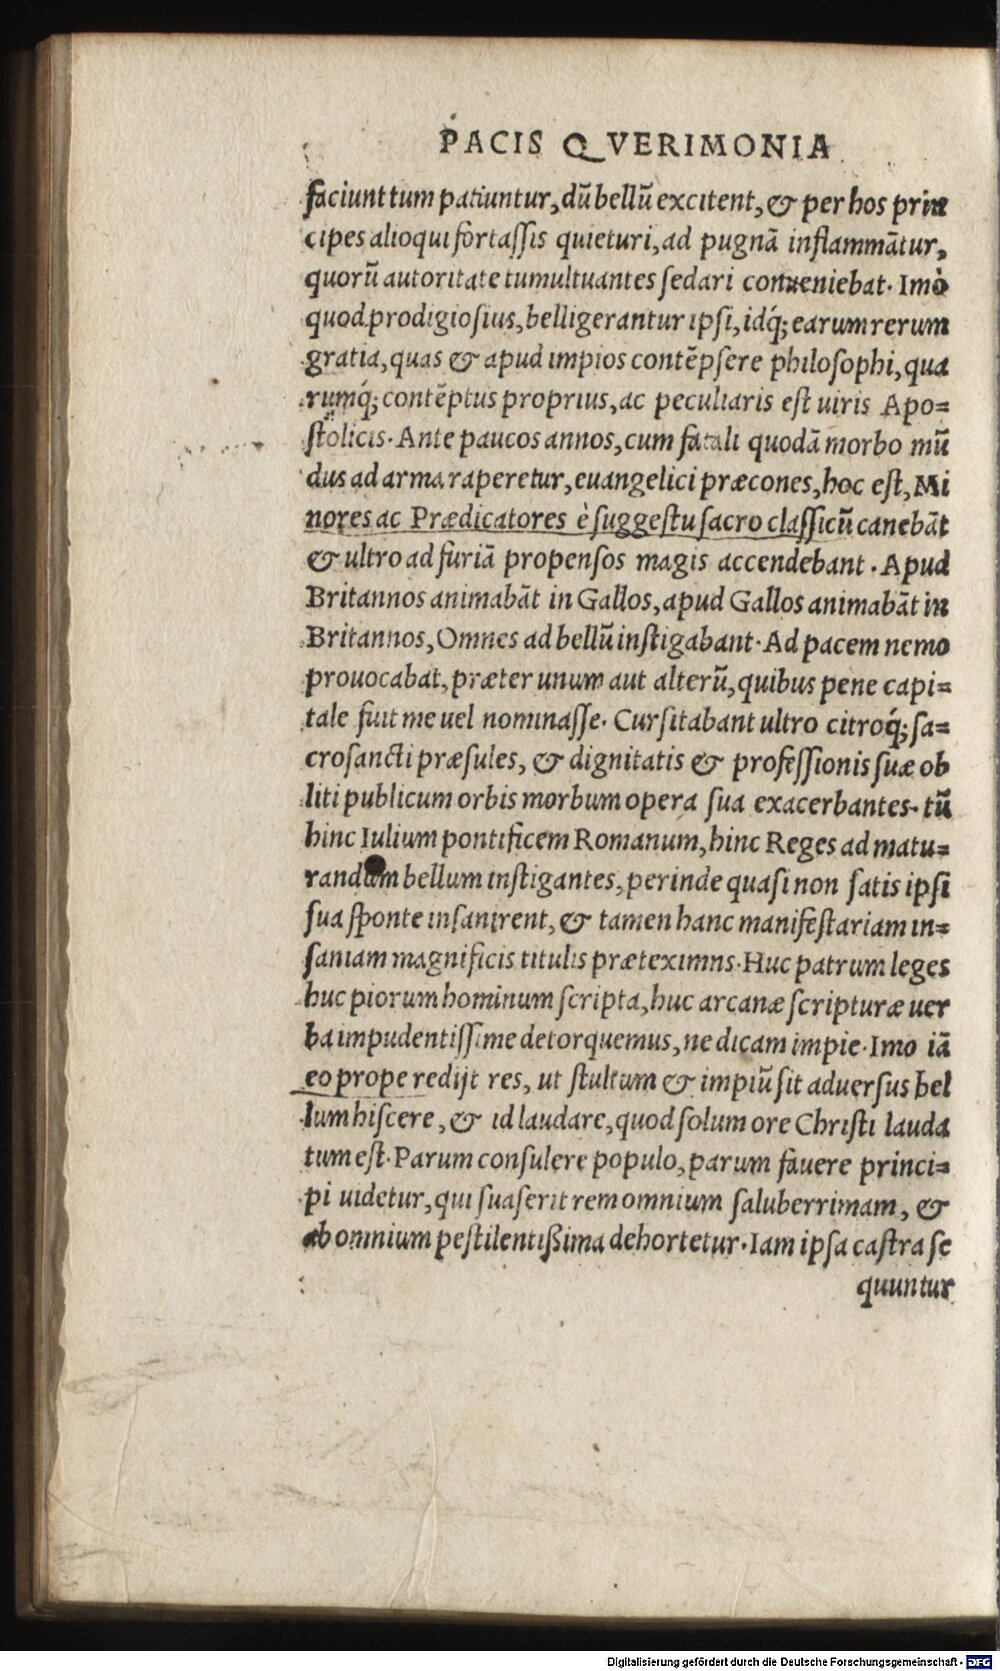 PACIS QVERIMONIA
faciunt tum patiuntur, dū bellū excitent, & per hos prin
cipes alioqui fortaſſis quieturi, ad pugnā inflammātur,
quorū autoritate tumultuantes ſedari conueniebat. Imò
quod prodigioſius, belligerantur ipſi, idq́; earum rerum
gratia, quas & apud impios contēpſere philoſophi, qua
rumq́; contēptus proprius, ac peculiaris eſt uiris Apo=
ſtolicis. Ante paucos annos, cum fatali quodā morbo mū
dus ad arma raperetur, euangelici præcones, hoc eſt, Mi
nores ac Prædicatores è ſuggeſtu ſacro claſſicū canebāt
& ultro ad furiā propenſos magis accendebant. Apud
Britannos animabāt in Gallos, apud Gallos animabāt in
Britannos, Omnes ad bellū inſtigabant. Ad pacem nemo
prouocabat, præter unum aut alterū, quibus pene capi=
tale fuit me uel nominaſſe. Curſitabant ultro citroq́; ſa=
croſancti præſules, & dignitatis & profeſſionis ſuæ ob
liti publicum orbis morbum opera ſua exacerbantes. tū
hinc Iulium pontificem Romanum, hinc Reges ad matu=
randum bellum inſtigantes, perinde quaſi non ſatis ipſi
ſua ſponte inſanirent, & tamen hanc manifeſtariam in=
ſaniam magnificis titulis prætexımns. Huc patrum leges
huc piorum hominum ſcripta, huc arcanæ ſcripturæ uer
ba impudentiſſime detorquemus, ne dicam impie. Imo iā
eo prope redijt res, ut ſtultum & impiū ſit aduerſus bel
lum hiſcere, & id laudare, quod ſolum ore Chriſti lauda
tum eſt. Parum conſulere populo, parum fauere princi=
pi uidetur, qui ſuaſerit rem omnium ſaluberrimam, &
ab omnium peſtilentißima dehortetur. Iam ipſa caſtra ſe
quuntur
Digitalisierung gefördert durch die Deutsche Forschungsgemeinschaft - DFG